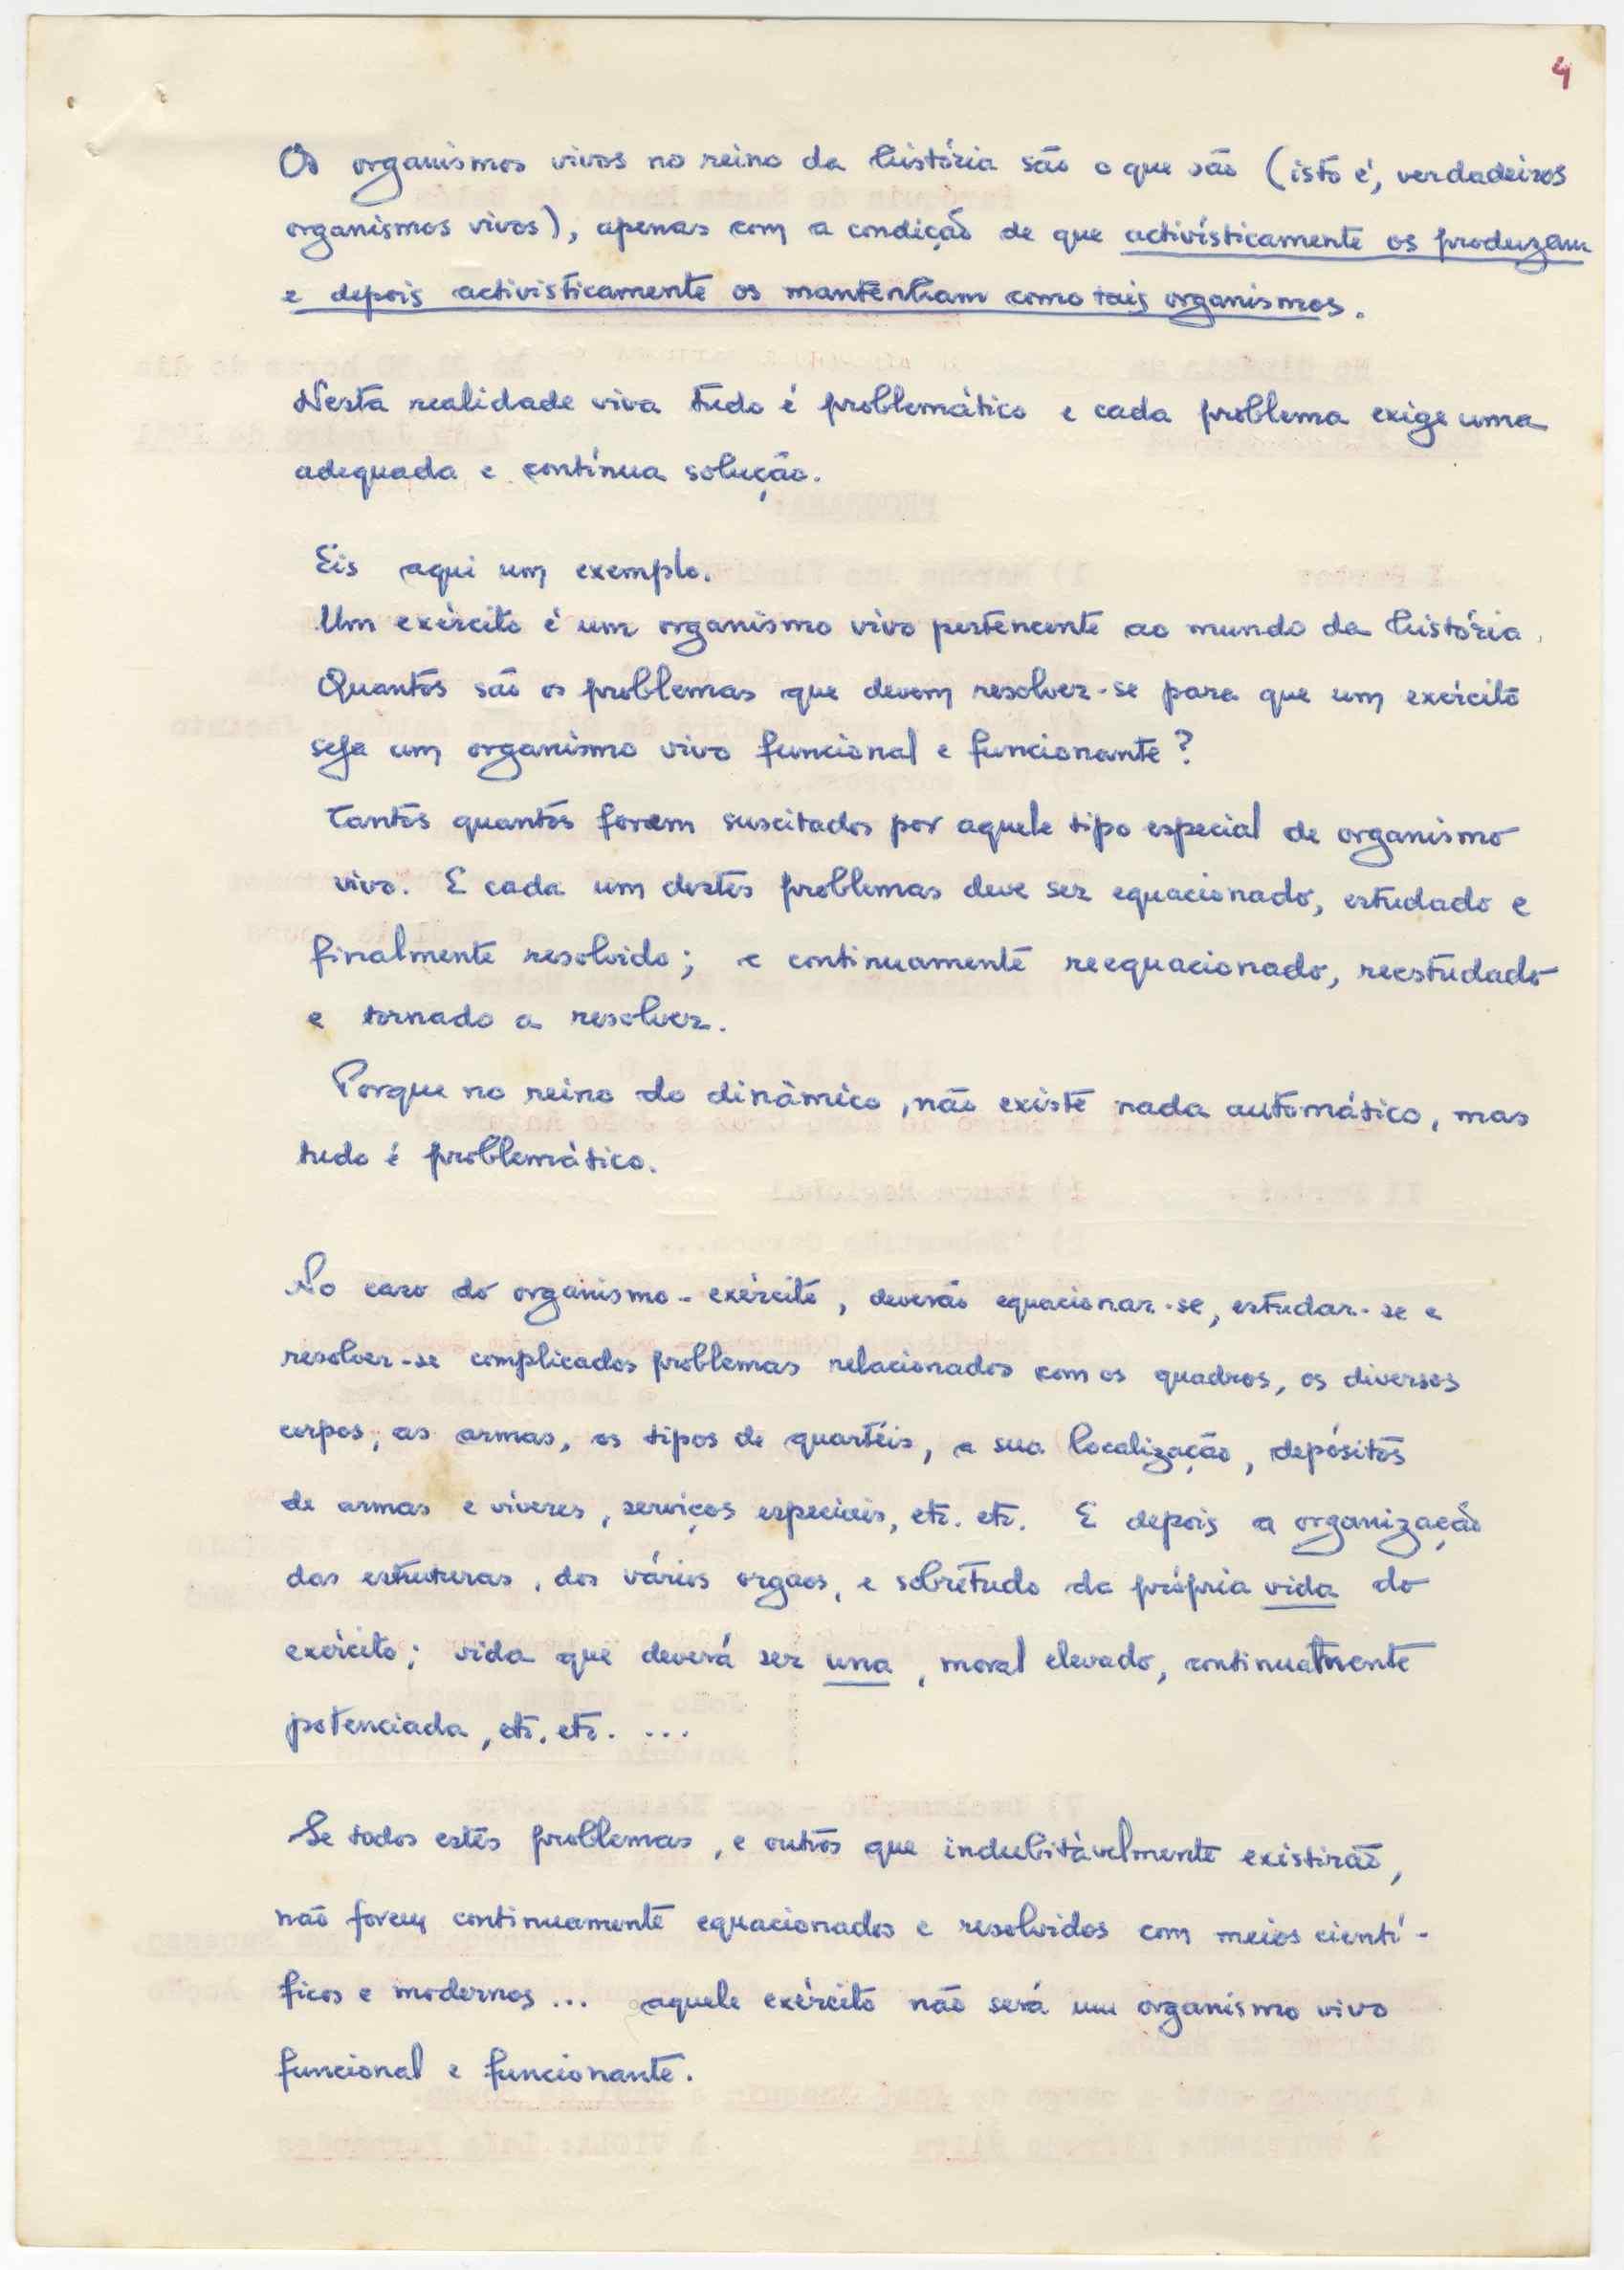 4
Os organismos vivos no reino da história são o que são (isto é, verdadeiros
organismos vivos), apenas com a condição de que activìsticamente os produzam
e depois activisticamente os mantenham como tais organismos.
Nesta realidade viva tudo é problemático e cada problema exige uma
adequada e contínua solução.
Eis aqui um exemplo.
Um exército é um organismo vivo pertencente ao mundo da história.
Quantos são os problemas que devem resolver-se para que um exército
seja um organismo vivo funcional e funcionante?
Tantos quantos forem suscitados por aquele tipo especial de organismo
vivo. E cada um destes problemas deve ser equacionado, estudado e
finalmente resolvido; e continuamente reequacionado, reestudado
e tornado a resolver.
Porque no reino do dinâmico, não existe nada automático, mas
tudo é problemático.
No caso do organismo-exército, deverão equacionar-se, estudar-se e
resolver-se complicados problemas relacionados com os quadros, os diversos
corpos, as armas, os tipos de quartéis, a sua localização, depósitos
de armas e víveres, serviços especiais, etc. etc. E depois a organização
das estruturas, dos vários orgãos, e sobretudo da própria vida do
exército; vida que deverá ser una, moral elevado, continuamente
potenciada, etc. etc. ...
Se todos estes problemas, e outros que indubitàvelmente existirão,
não forem continuamente equacionados e resolvidos com meios cientí-
ficos e modernos... aquele exército não será um organismo vivo
funcional e funcionante.